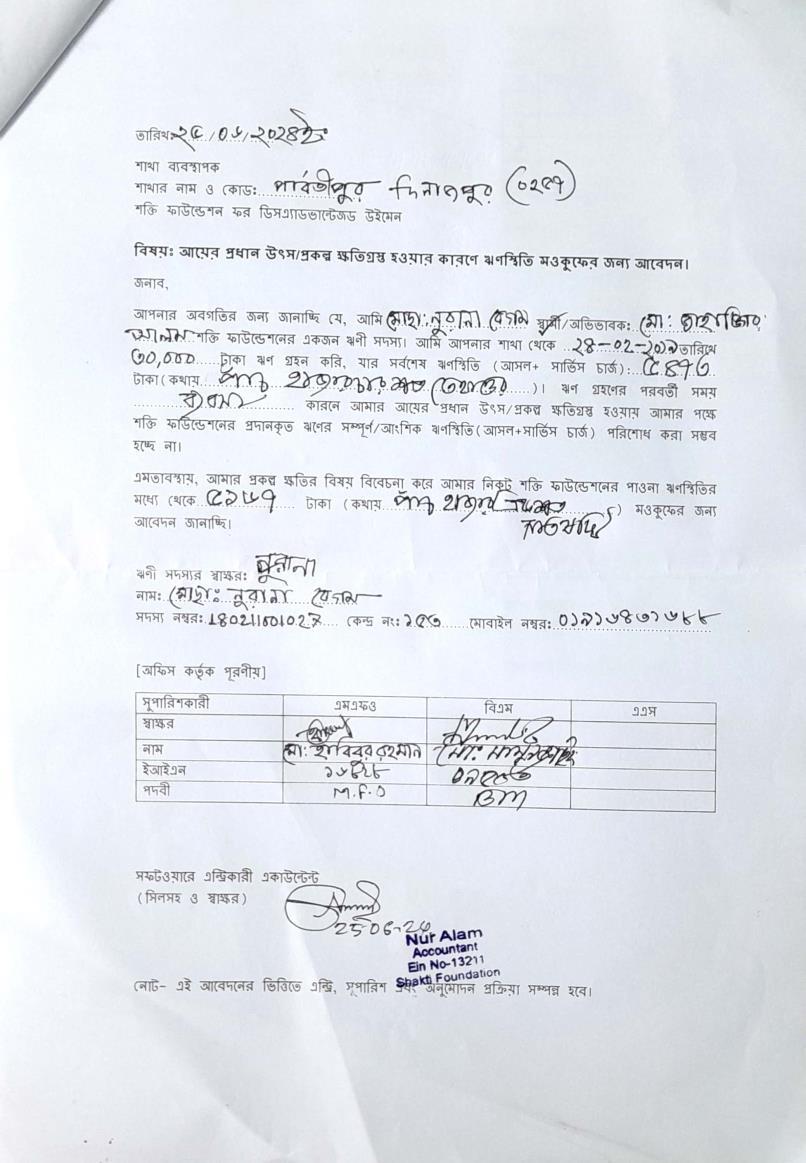 তারিখঃ ২৫/০৬/২০২৪ইং
শাখা ব্যবস্থাপক
শাখার নাম ও কোড: পার্বতীপুর দিনাজপুর (০২৫৭)
শক্তি ফাউন্ডেশন ফর ডিসএ্যাডভান্টেজড উইমেন
বিষয়ঃ আয়ের প্রধান উৎস/প্রকল্প ক্ষতিগ্রস্ত হওয়ার কারণে ঋণস্থিতি মওকুফের জন্য আবেদন।
জনাব,
আপনার অবগতির জন্য জানাচ্ছি যে, আমি মোছা: নুরানা বেগম স্বামী/অভিভাবক: মো:
আলম শক্তি ফাউন্ডেশনের একজন ঋণী সদস্য। আমি আপনার শাখা থেকে ২৪-০২-২০১৯ তারিখে
৩০,০০০ টাকা ঋণ গ্রহন করি, যার সর্বশেষ ঋণস্থিতি (আসল+ সার্ভিস চার্জ): ৫৪৭৩
টাকা(কথায় পাঁচ হাজার চার শত তেয়াত্তর )। ঋণ গ্রহণের পরবর্তী সময়
কারনে আমার আয়ের প্রধান উৎস/প্রকল্প ক্ষতিগ্রস্ত হওয়ায় আমার পক্ষে
শক্তি ফাউন্ডেশনের প্রদানকৃত ঋণের সম্পূর্ণ/আংশিক ঋণস্থিতি(আসল+সার্ভিস চার্জ) পরিশোধ করা সম্ভব
হচ্ছে না।
এমতাবস্থায়, আমার প্রকল্প ক্ষতির বিষয় বিবেচনা করে আমার নিকট শক্তি ফাউন্ডেশনের পাওনা ঋণস্থিতির
মধ্যে থেকে ৫১৬৭ টাকা (কথায় পাঁচ হাজার একশত ) মওকুফের জন্য
আবেদন জানাচ্ছি। সাতষট্টি
ঋণী সদস্যর স্বাক্ষর: নুরানা
নাম: মোছা: নুরানা বেগম
সদস্য নম্বর: কেন্দ্র নং: ১৫৩ মোবাইল নম্বর:
[অফিস কর্তৃক পূরণীয়]
সুপারিশকারী এমএফও বিএম এএস
স্বাক্ষর
নাম মো: হাবিবুর রহমান
ইআইএন
পদবী M.F.O BM
সফটওয়ারে এন্ট্রিকারী একাউন্টেন্ট
(সিলসহ ও স্বাক্ষর)
25-06-24
Nur Alam
Accountant
Ein No-13211
Shakti Foundation
নোট- এই আবেদনের ভিত্তিতে এন্ট্রি, সুপারিশ এবং অনুমোদন প্রক্রিয়া সম্পন্ন হবে।